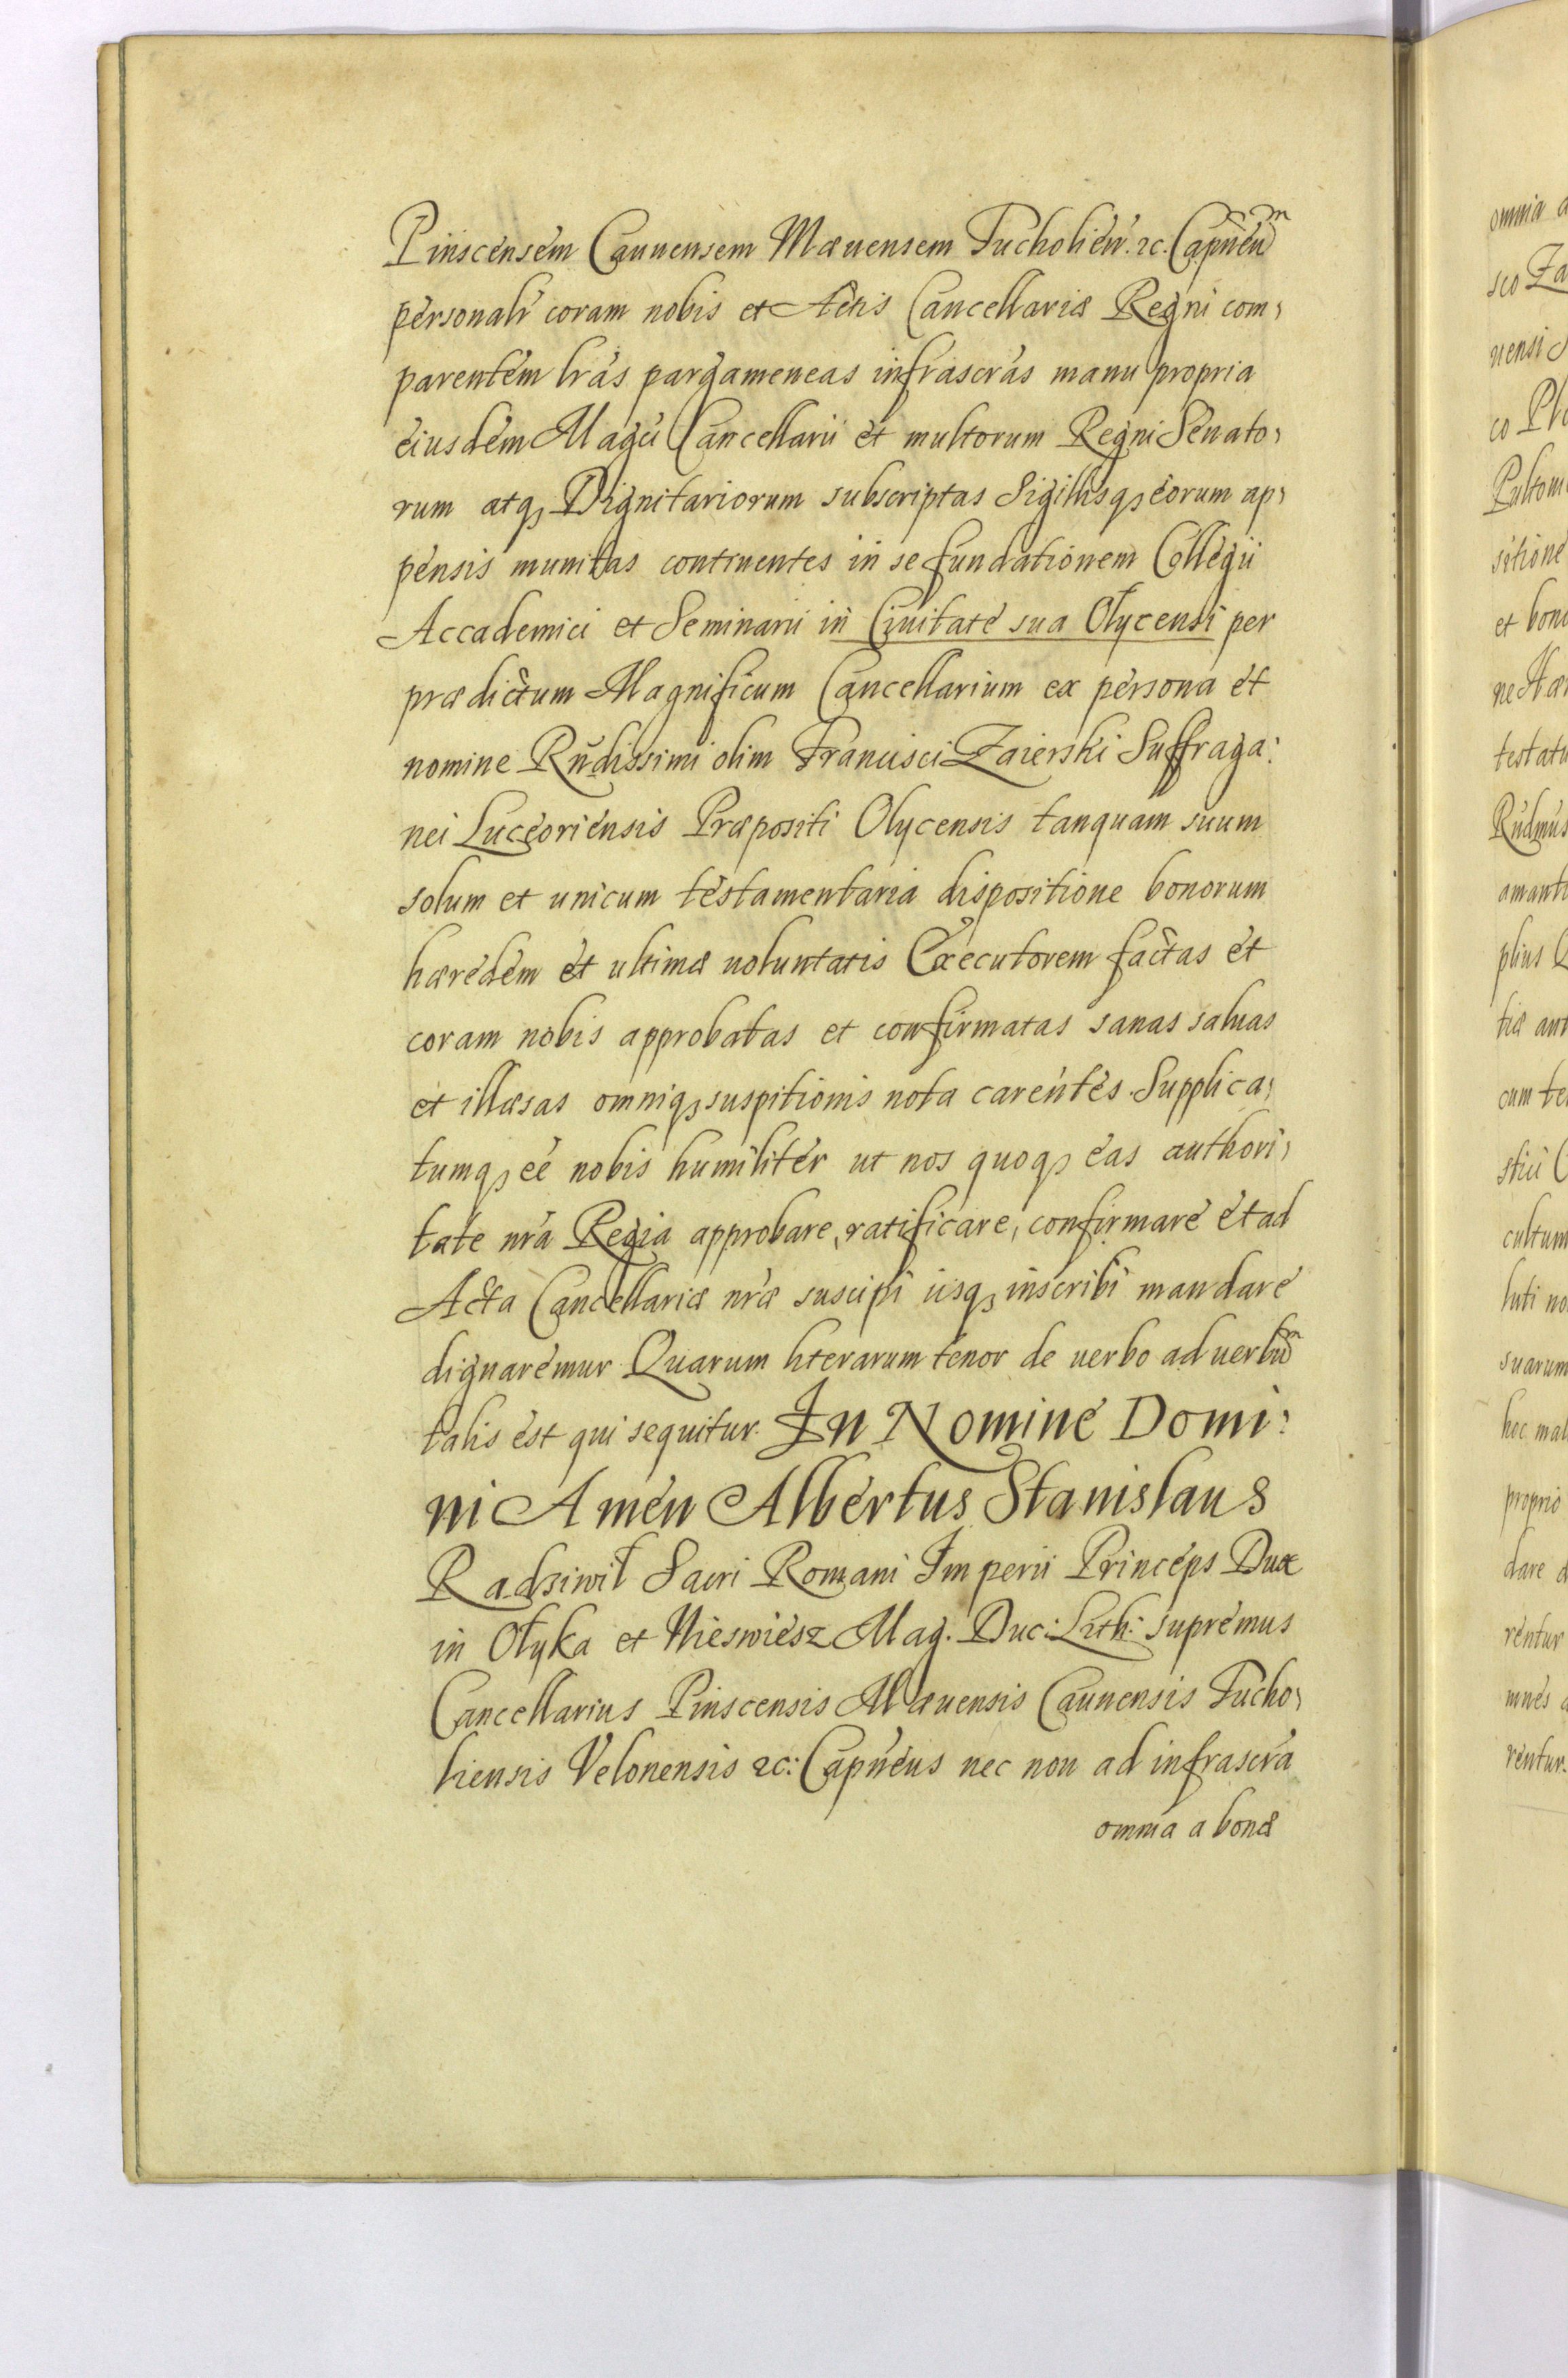 Pinscensem Caunensem Mæuensem Tucholieñ. ꝛc. Capñeu͂m
personalr̃ coram nobis et Actis Cancellariæ Regni com,
parentem lr̃as pargameneas infrascr̃as manu propria
eiusdem Magci Cancellarii et multorum Regni Senato,
rum atq́ꝫ Dignitariorum subscriptas Sigillisqꝫ eorum ap,
pensis munitas continentes in se fundationem Collegii
Accademici et Seminarii in Ciuitate sua Ołycensi per
prædictum Magnificum Cancellarium ex persona et
nomine Rñdissimi olim Francisci Zaierski Suffraga:
nei Luceoriensis Præpositi Olycensis tanquam suum
solum et unicum testamentaria dispositione bonorum
hæredem et ultimæ uoluntatis Executorem factas et
coram nobis approbatas et confirmatas sanas saluas
et illæsas omniqꝫ suspitionis nota carentes. Supplica,
tumqꝫ eẽ nobis humiliter ut nos quoqꝫ eas authori,
tate nr̃a Regia approbare, ratificare, confirmare et ad
Acta Cancellariæ nr̃æ suscipi iisqꝫ inscribi mandare
dignaremur Quarum literarum tenor de uerbo ad uerbu͂m
talis est qui sequitur. In Nomine Domi:
ni Amen Albertus Stanislaus
Radziwił Sacri Romani Imperii Princeps Dux
in Ołyka et Nieswiesz Mag. Duc: Lith: supremus
Cancellarius Pinscensis Mæuensis Caunensis Tucho,
liensis Velonensis ꝛc: Capñeus nec non ad infrascr̃a
omnia a bonæ